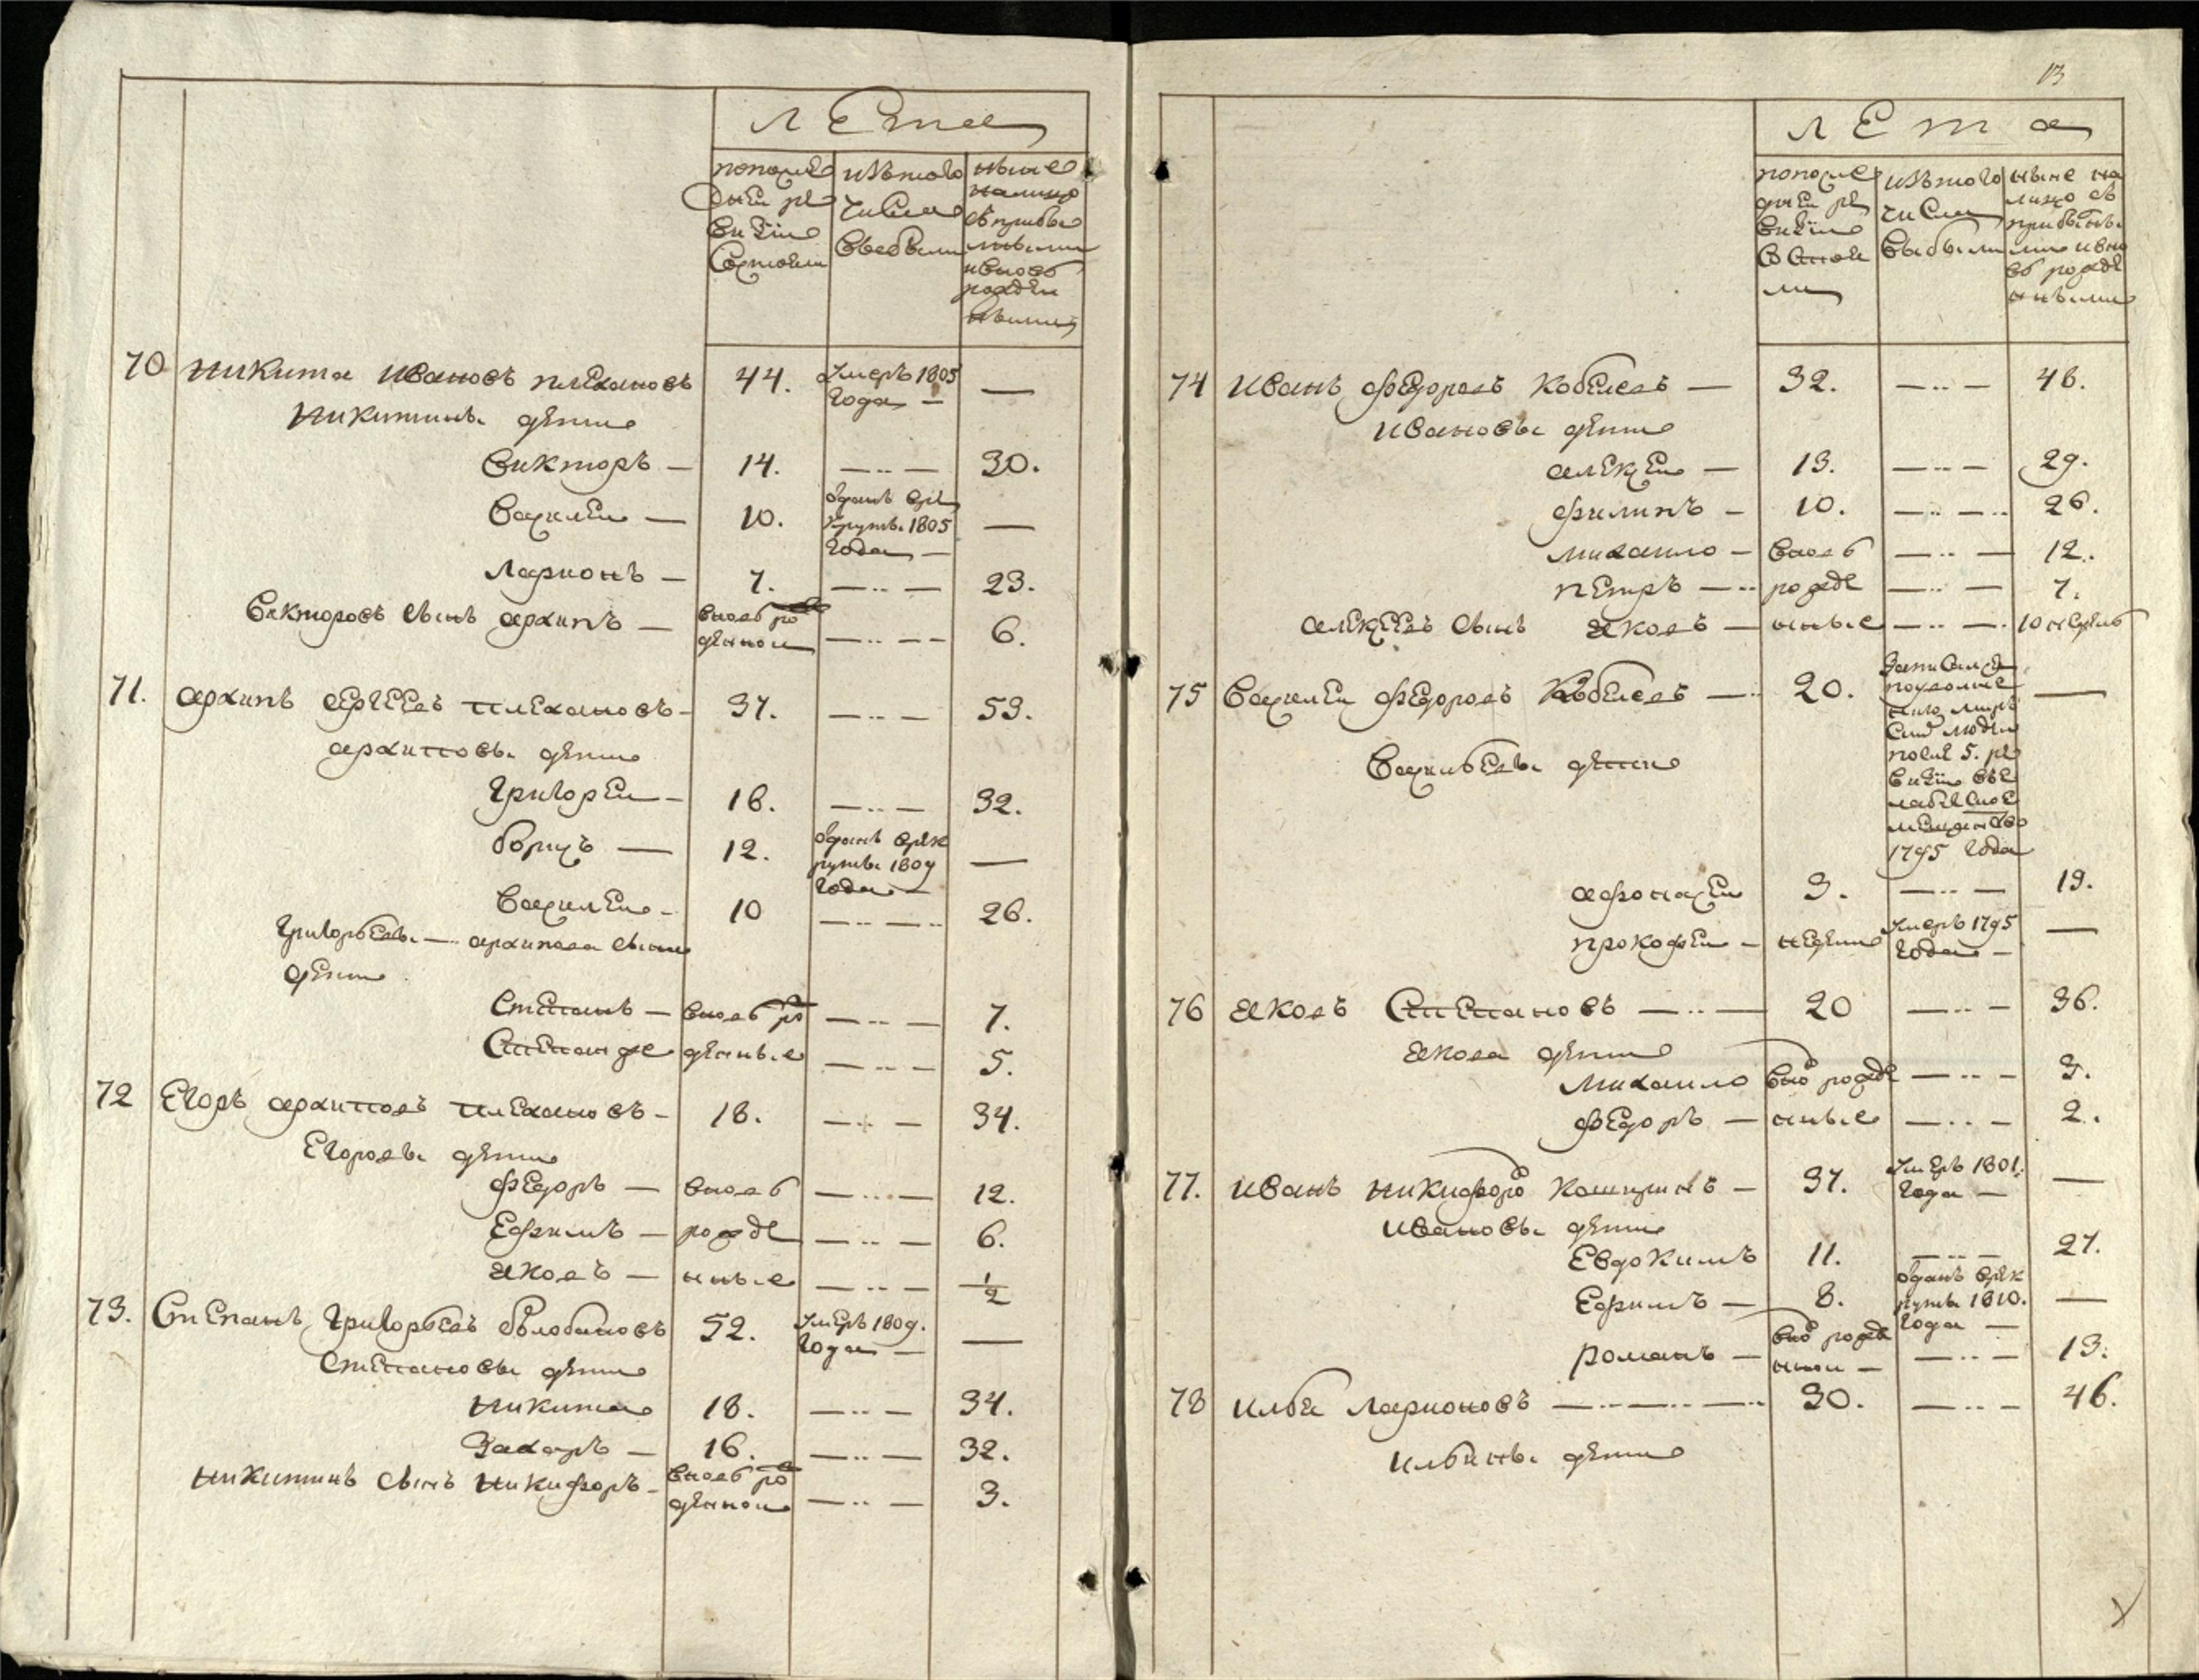 лета
попосле
дней ре
визiи
состояли
изътого
числа
выбыли
ныне
налицо
съприбы
лыми
ивновь
рожден
ными
70 никита ивановъ плехановъ 44. умеръ 1805 года — —
никитины дети
викторъ — 14. — 30.
василеи — 10. отданъ вре круты 1805 года — —
ларионъ — 7. — 23.
викторовъ сынъ архипъ — вновь ро жденнои — 6.
71. архипъ сергеевъ плехановъ — 37. — 53.
архиповы дети
григореи — 16. — 32.
борисъ — 12. отданъ врек руты 1809 года — —
василеи — 10 — 26.
григорьевы — архипова сына
дети
степанъ — вновь ро — 7.
степан же жденные — 5.
72 егоръ архиповъ плехановъ — 18. — 34.
егоровы дети
федоръ — вновь — 12.
ефимъ — рожде — 6.
яковъ — нные — 1/2
73. степанъ григорьевъ 52. умеръ 1809. года — —
степановы дети
никита 18. — 34.
захаръ — 16. — 32.
никитинъ сынъ никифоръ — вновь ро жденнои — 3.
13
лета
попосле
дней ре
визiи
состоя
ли
изътого
числа
выбыли
ныне на
лицо съ
прибылы
ми ивно
вь рожде
нными
74 иванъ федоровъ кобелевъ — 32. — 48.
ивановы дети
алексеи — 13. — 29.
филипъ — 10. — 26.
михаило — вновь — 12.
петръ — рожде — 7.
алексеевъ сынъ яковъ — нные — 10 недель
75 василеи федоровъ кобелевъ — 20. —
васильевы дети
после 5. ре
визiи
1795 года
афонасеи 3. — 19.
прокофеи — недели умеръ 1795 года — —
76 яковъ степановъ — 20 — 36.
якова дети
михаило вно рожде — 3.
федоръ — нные — 2.
77. иванъ никифоро кашицинъ — 37. умеръ 1801. года — —
ивановы дети
евдокимъ 11. — 27.
ефимъ — 8. отданъ врек руты 1810. года — —
романъ — вно рожде ннои — — 13.
78 илья ларионовъ — 30. — 46.
ильины дети